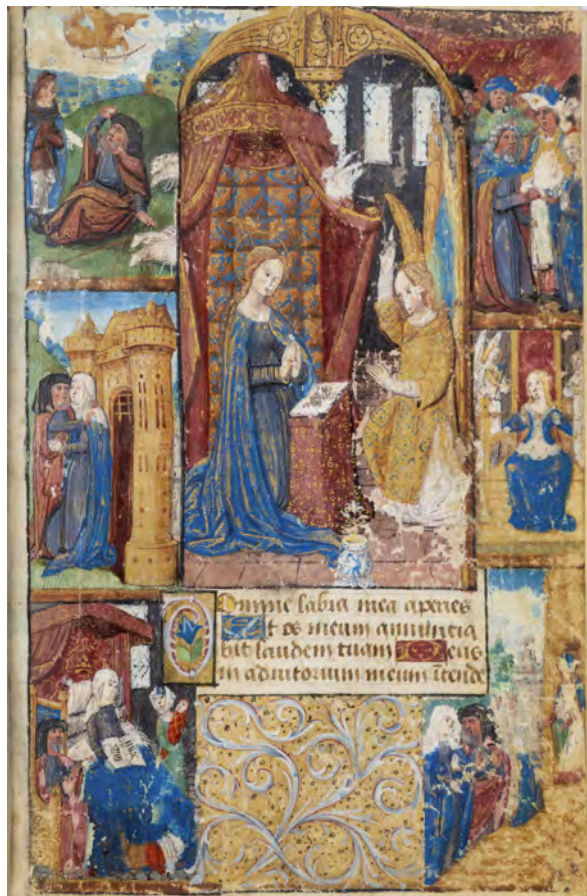 Domine labia mea aperies
Et os meum annuncia
bit laudem tuam Deus
in adiutorium meum itende